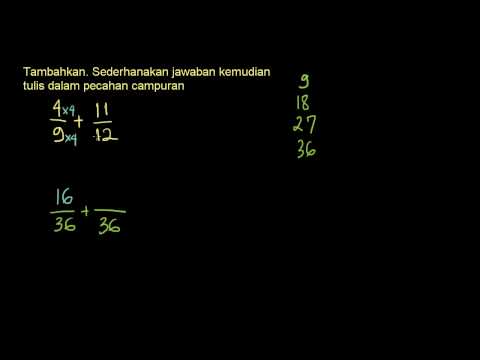 Tambahkan. Sederhanakan jawaban kemudian
tulis dalam pecahan campuran
4x4 + 11
9x4 12
16 +
36 36
9
18
27
36